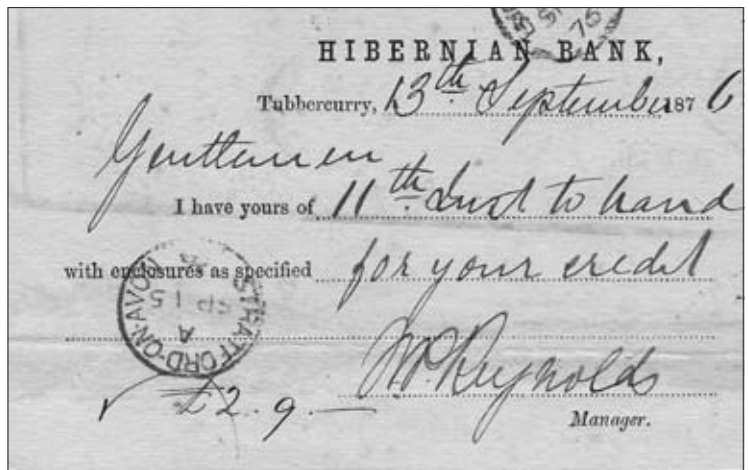 HIBERNIAN BANK,
Tubbercurry, 13th September 1876
Gentlemen
I have yours of 11th Inst to hand
with enclosures as specified for your credit
STRATFORD-ON-AVON
A
SP 15
Reynolds
£2.9.—
Manager.